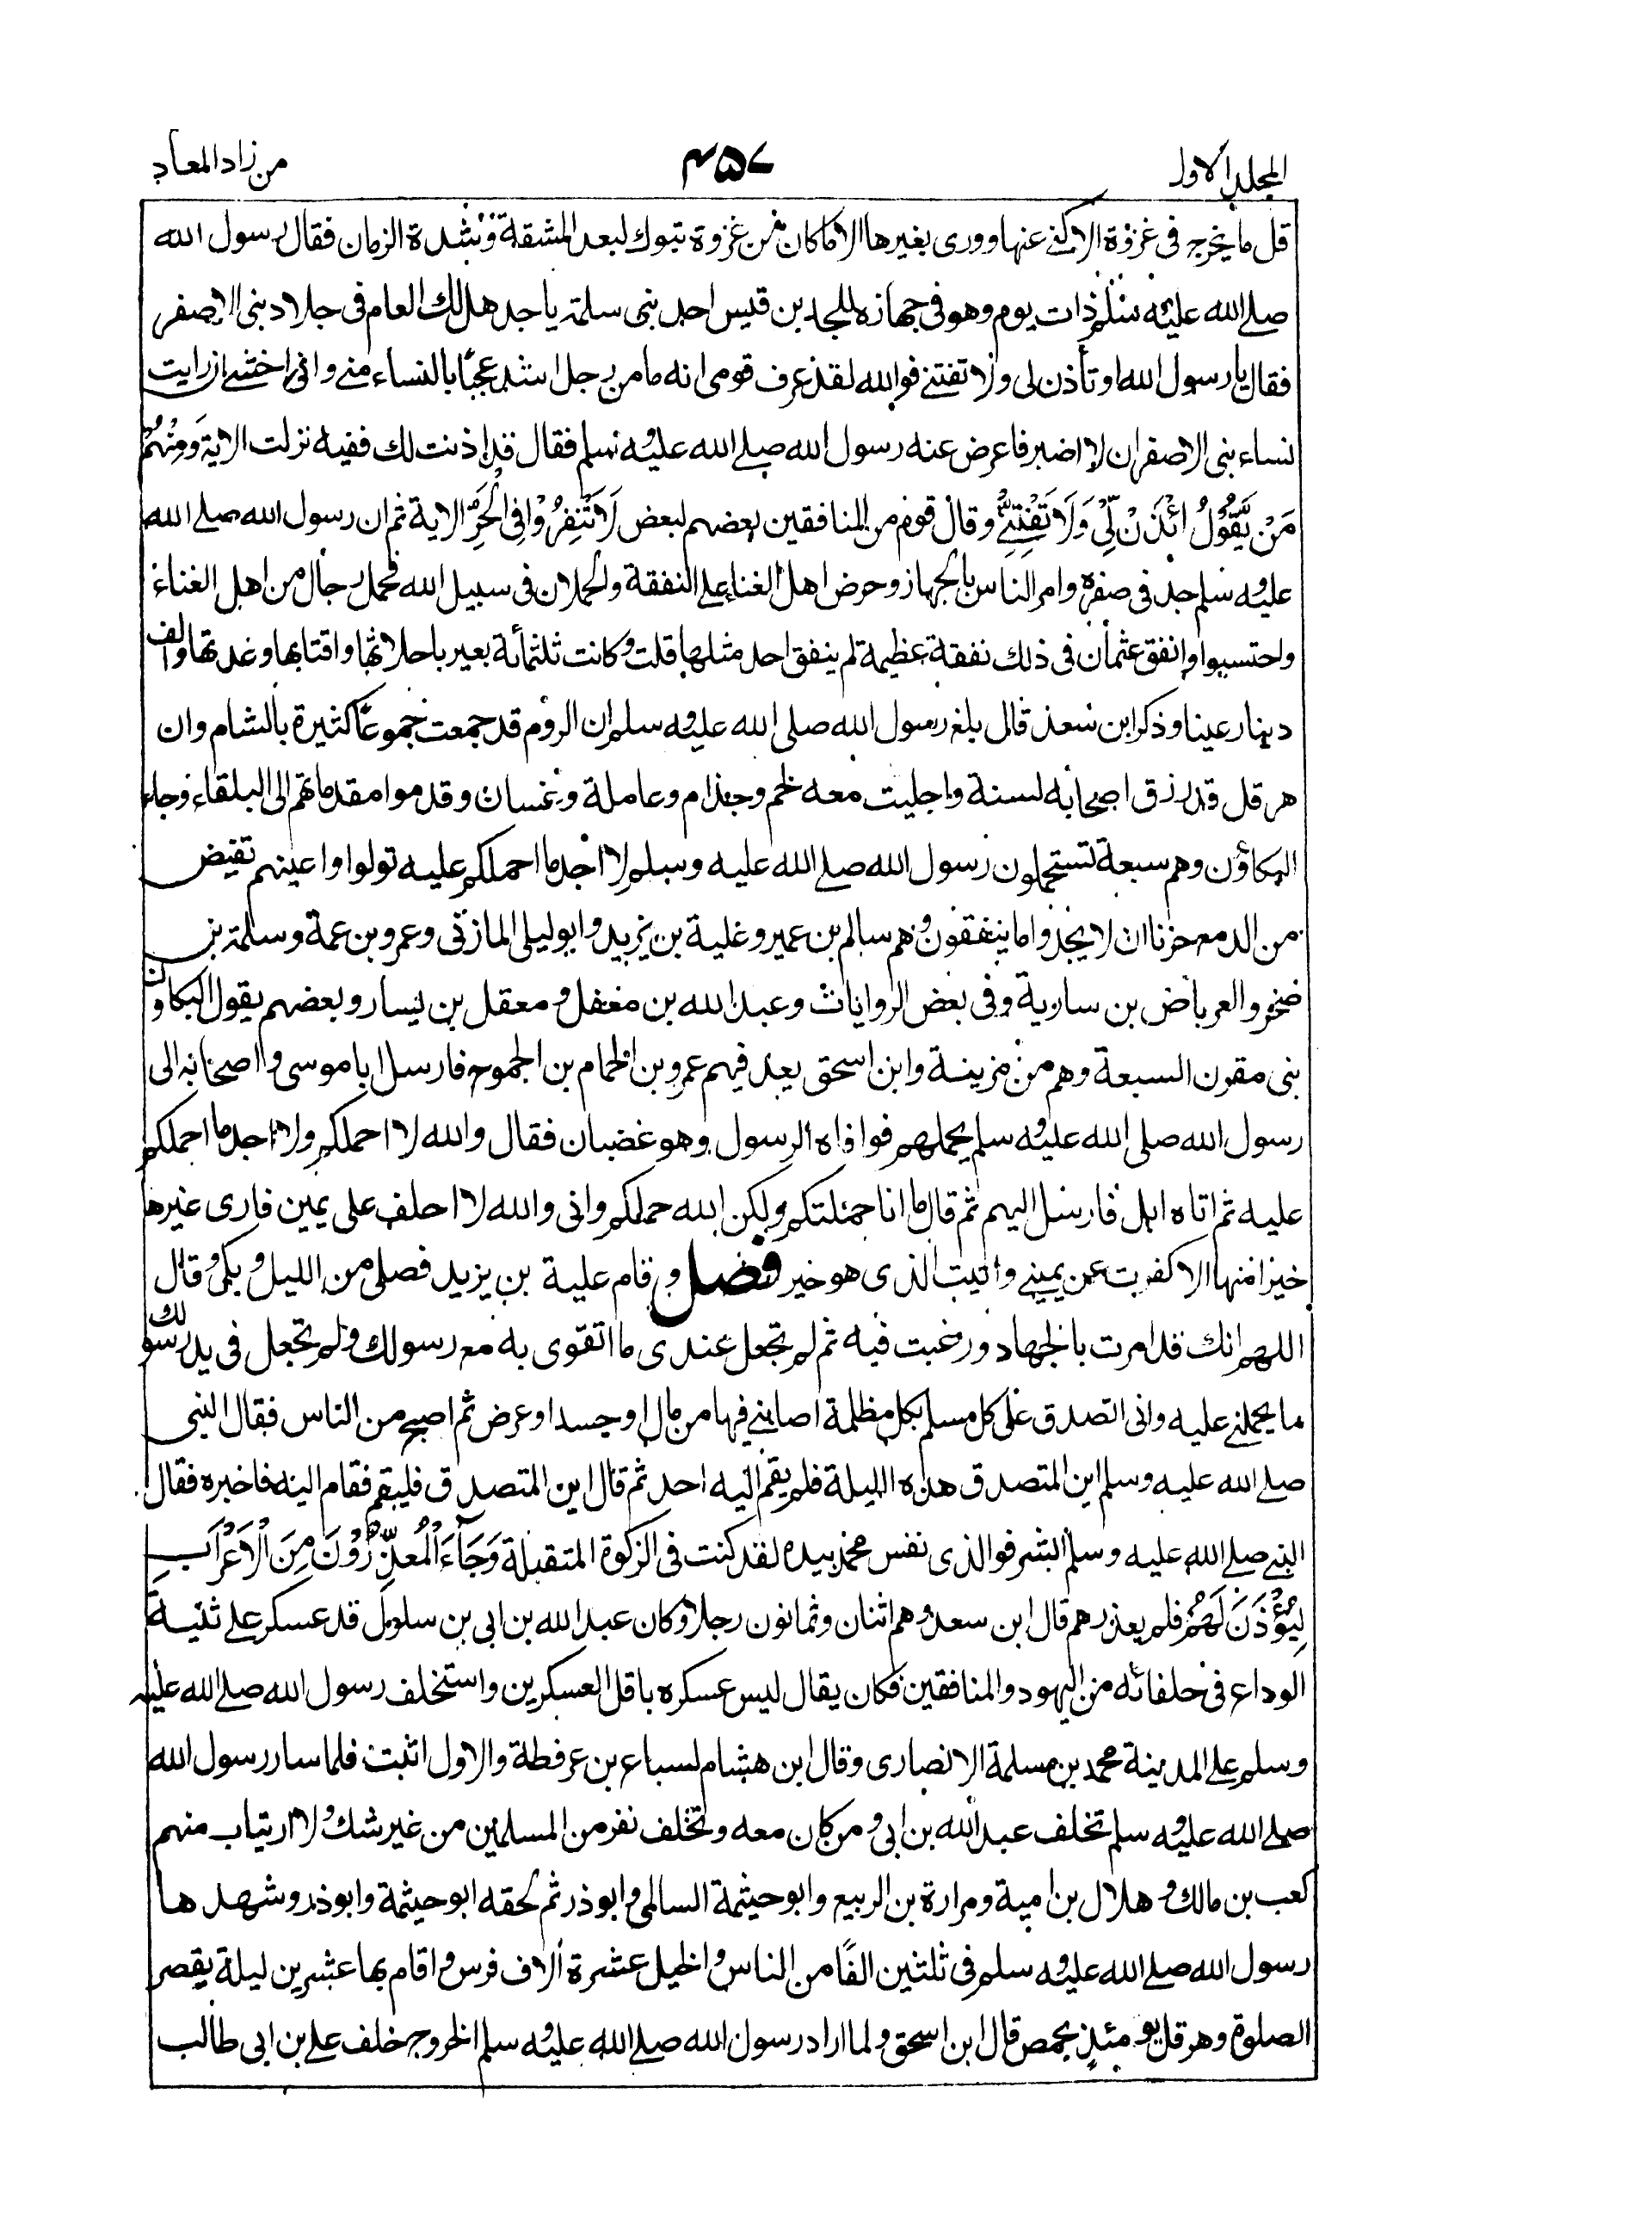 المجلد الاول
۴۵۷
من زاد المعاد
قل ما يخرج فى غزوة الا كنى عنها وورى بغيرها الا ما كان من غزوة تبوك لبعد المشقة وشدة الزمان فقال رسول الله
صلے الله عليه وسلم ذات يوم وهو فى جهازه للجد بن قيس احد بنى سلمة يا جد هل لك العام فى جلاد بنى الاصفر
فقال يا رسول الله او تأذن لى ولا تفتنے فوالله لقد عرف قومى انه ما من رجل اشد عجبًا بالنساء منے وانى اخشے ان رايت
نساء بنى الاصفر ان لا اصبر فاعرض عنه رسول الله صلے الله عليه وسلم فقال قد اذنت لك ففيه نزلت الاية وَمِنْهُمْ
مَنْ يَّقُوْلُ ائْذَنْ لِّيْ وَلَا تَفْتِنِّے وقال قوم من المنافقين بعضهم لبعض لَا تَنْفِرُوْا فِى الْحَرِّ الاية ثم ان رسول الله صلے الله
عليه وسلم جد فى سفره وامر الناس بالجهاز وحرض اهل الغناء على النفقة والحملان فى سبيل الله فحمل رجال من اهل الغناء
واحتسبوا وانفق عثمان فى ذلك نفقة عظيمة لم ينفق احد مثلها قلت وكانت ثلثمائة بعير باحلاثها واقتابها وعدتها والف
دينار عينا وذكر ابن سعد قال بلغ رسول الله صلى الله عليه وسلم ان الروم قد جمعت جموعًا كثيرة بالشام وان
هرقل قد رزق اصحابه لسنة واجليت معه لخم وجذام وعاملة وغسان وقدموا مقدماتهم الى البلقاء وجاء
البكاؤن وهم سبعة لتستحملون رسول الله صلے الله عليه وسلم لا اجد ما احملكم عليه تولوا واعينهم تفيض
من الدمع حزنا ان لا يجدوا ما ينفقون وهم سالم بن عمير وغلية بن يزيد وابو ليلى المازنى وعمرو بن عمة وسلمة بن
صخر والعرباض بن سارية وفى بعض الروايات وعبد الله بن مغفل ومعقل بن يسار وبعضهم يقول البكاون
بنى مقرن السبعة وهم من مزينة وابن اسحق يعد فيهم عمرو بن الحمام بن الجموح فارسل ابا موسى واصحابه الى
رسول الله صلى الله عليه وسلم يحملهم فوافاه الرسول وهو غضبان فقال والله لا احملكم ولا اجد ما احملكم
عليه ثم اتاه ابل فارسل اليهم ثم قال ما انا حملتكم ولكن الله حملكم وانى والله لا احلف على يمين فارى غيرها
خيرا منها الا كفرت عن يمينے واتيت الذى هو خير فصل وقام علية بن يزيد فصلى من الليل وبكى وقال
اللهم انك قد امرت بالجهاد ورغبت فيه ثم لم تجعل عندى ما اتقوى به مع رسولك ولم تجعل فى يد رسولك
ما يحملنے عليه وانى اتصدق على كل مسلم بكل مظلمة اصابنے فيها من مال او جسد او عرض ثم اصبح من الناس فقال النبى
صلے الله عليه وسلم اين المتصدق هذه الليلة فلم يقم اليه احد ثم قال اين المتصدق فليقم فقام اليه فاخبره فقال
النبے صلے الله عليه وسلم ابشر فوالذى نفس محمد بيده لقد كنت فى الزكوة المتقبلة وَجَآءَ الْمُعَذِّرُوْنَ مِنَ الْاَعْرَابِ
لِيُؤْذَنَ لَهُمْ فلم يعذرهم قال ابن سعد وهم اثنان وثمانون رجلا وكان عبد الله بن ابى بن سلول قد عسكر على ثنية
الوداع فى حلفائه من اليهود والمنافقين فكان يقال ليس عسكره باقل العسكرين واستخلف رسول الله صلے الله عليه
وسلم على المدينة محمد بن مسلمة الانصارى وقال ابن هشام لسباع بن عرفطة والاول اثبت فلما سار رسول الله
صلے الله عليه وسلم تخلف عبد الله بن ابى ومن كان معه وتخلف نفر من المسلمين من غير شك ولا ارتياب منهم
كعب بن مالك وهلال بن امية ومرارة بن الربيع وابو حيثمة السالمى وابو ذر ثم لحقه ابو حيثمة وابو ذر وشهدها
رسول الله صلے الله عليه وسلم فى ثلثين الفًا من الناس والخيل عشرة ألاف فرس واقام بها عشرين ليلة يقصر
الصلوة وهرقل يومئذ بحمص قال ابن اسحق ولما اراد رسول الله صلے الله عليه وسلم الخروج خلف على بن ابى طالب